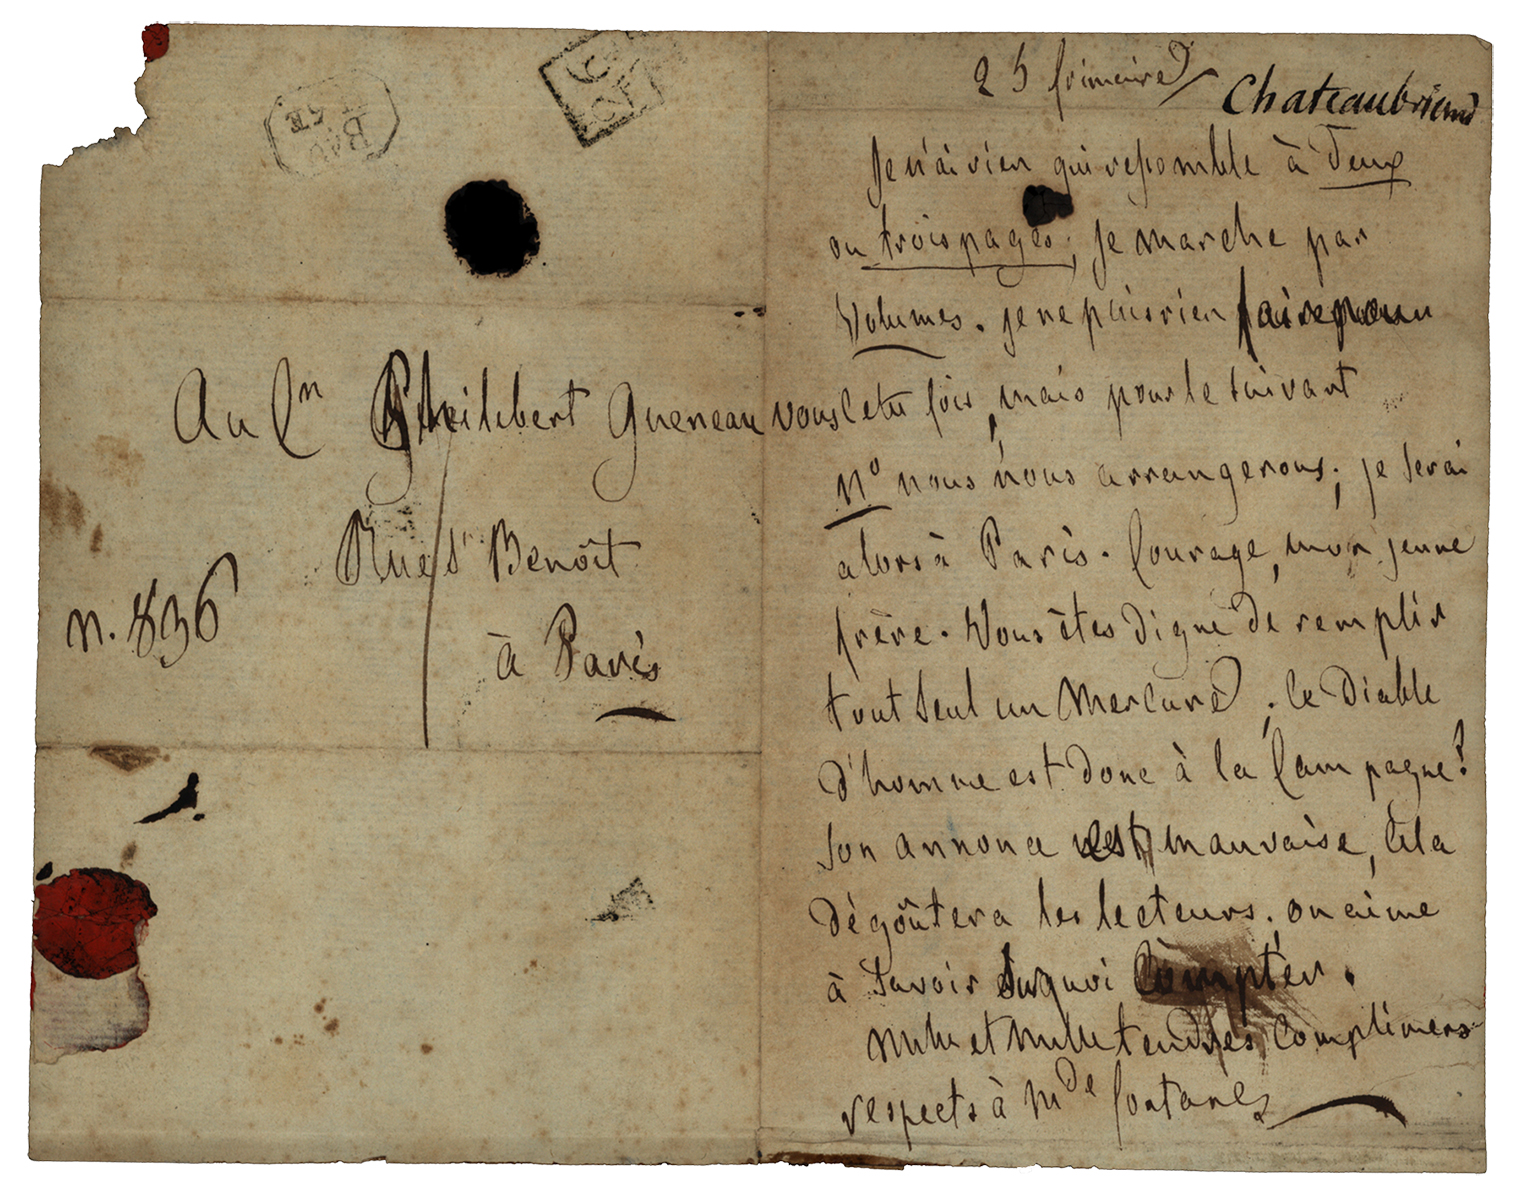 Au Cn Philibert Gueneau
Rue St Benoît
n. 836
à Paris
BAR
25 frimaire
Chateaubriand
Je n'ai rien qui ressemble à deux
ou trois pages; je marche par
Volumes. je ne puis rien faire pour
vous cette fois, mais pour le suivant
No nous nous arrangerons; je serai
alors à Paris. Courage, mon jeune
frère. Vous êtes digne de remplir
tout seul un Mercure; le Diable
d'homme est donc à la Campagne?
son annonce est mauvaise, cela
dégoûtera les lecteurs. on aime
à savoir sur quoi compter.
Mille et mille tendres complimens
respects à Mde fontanes